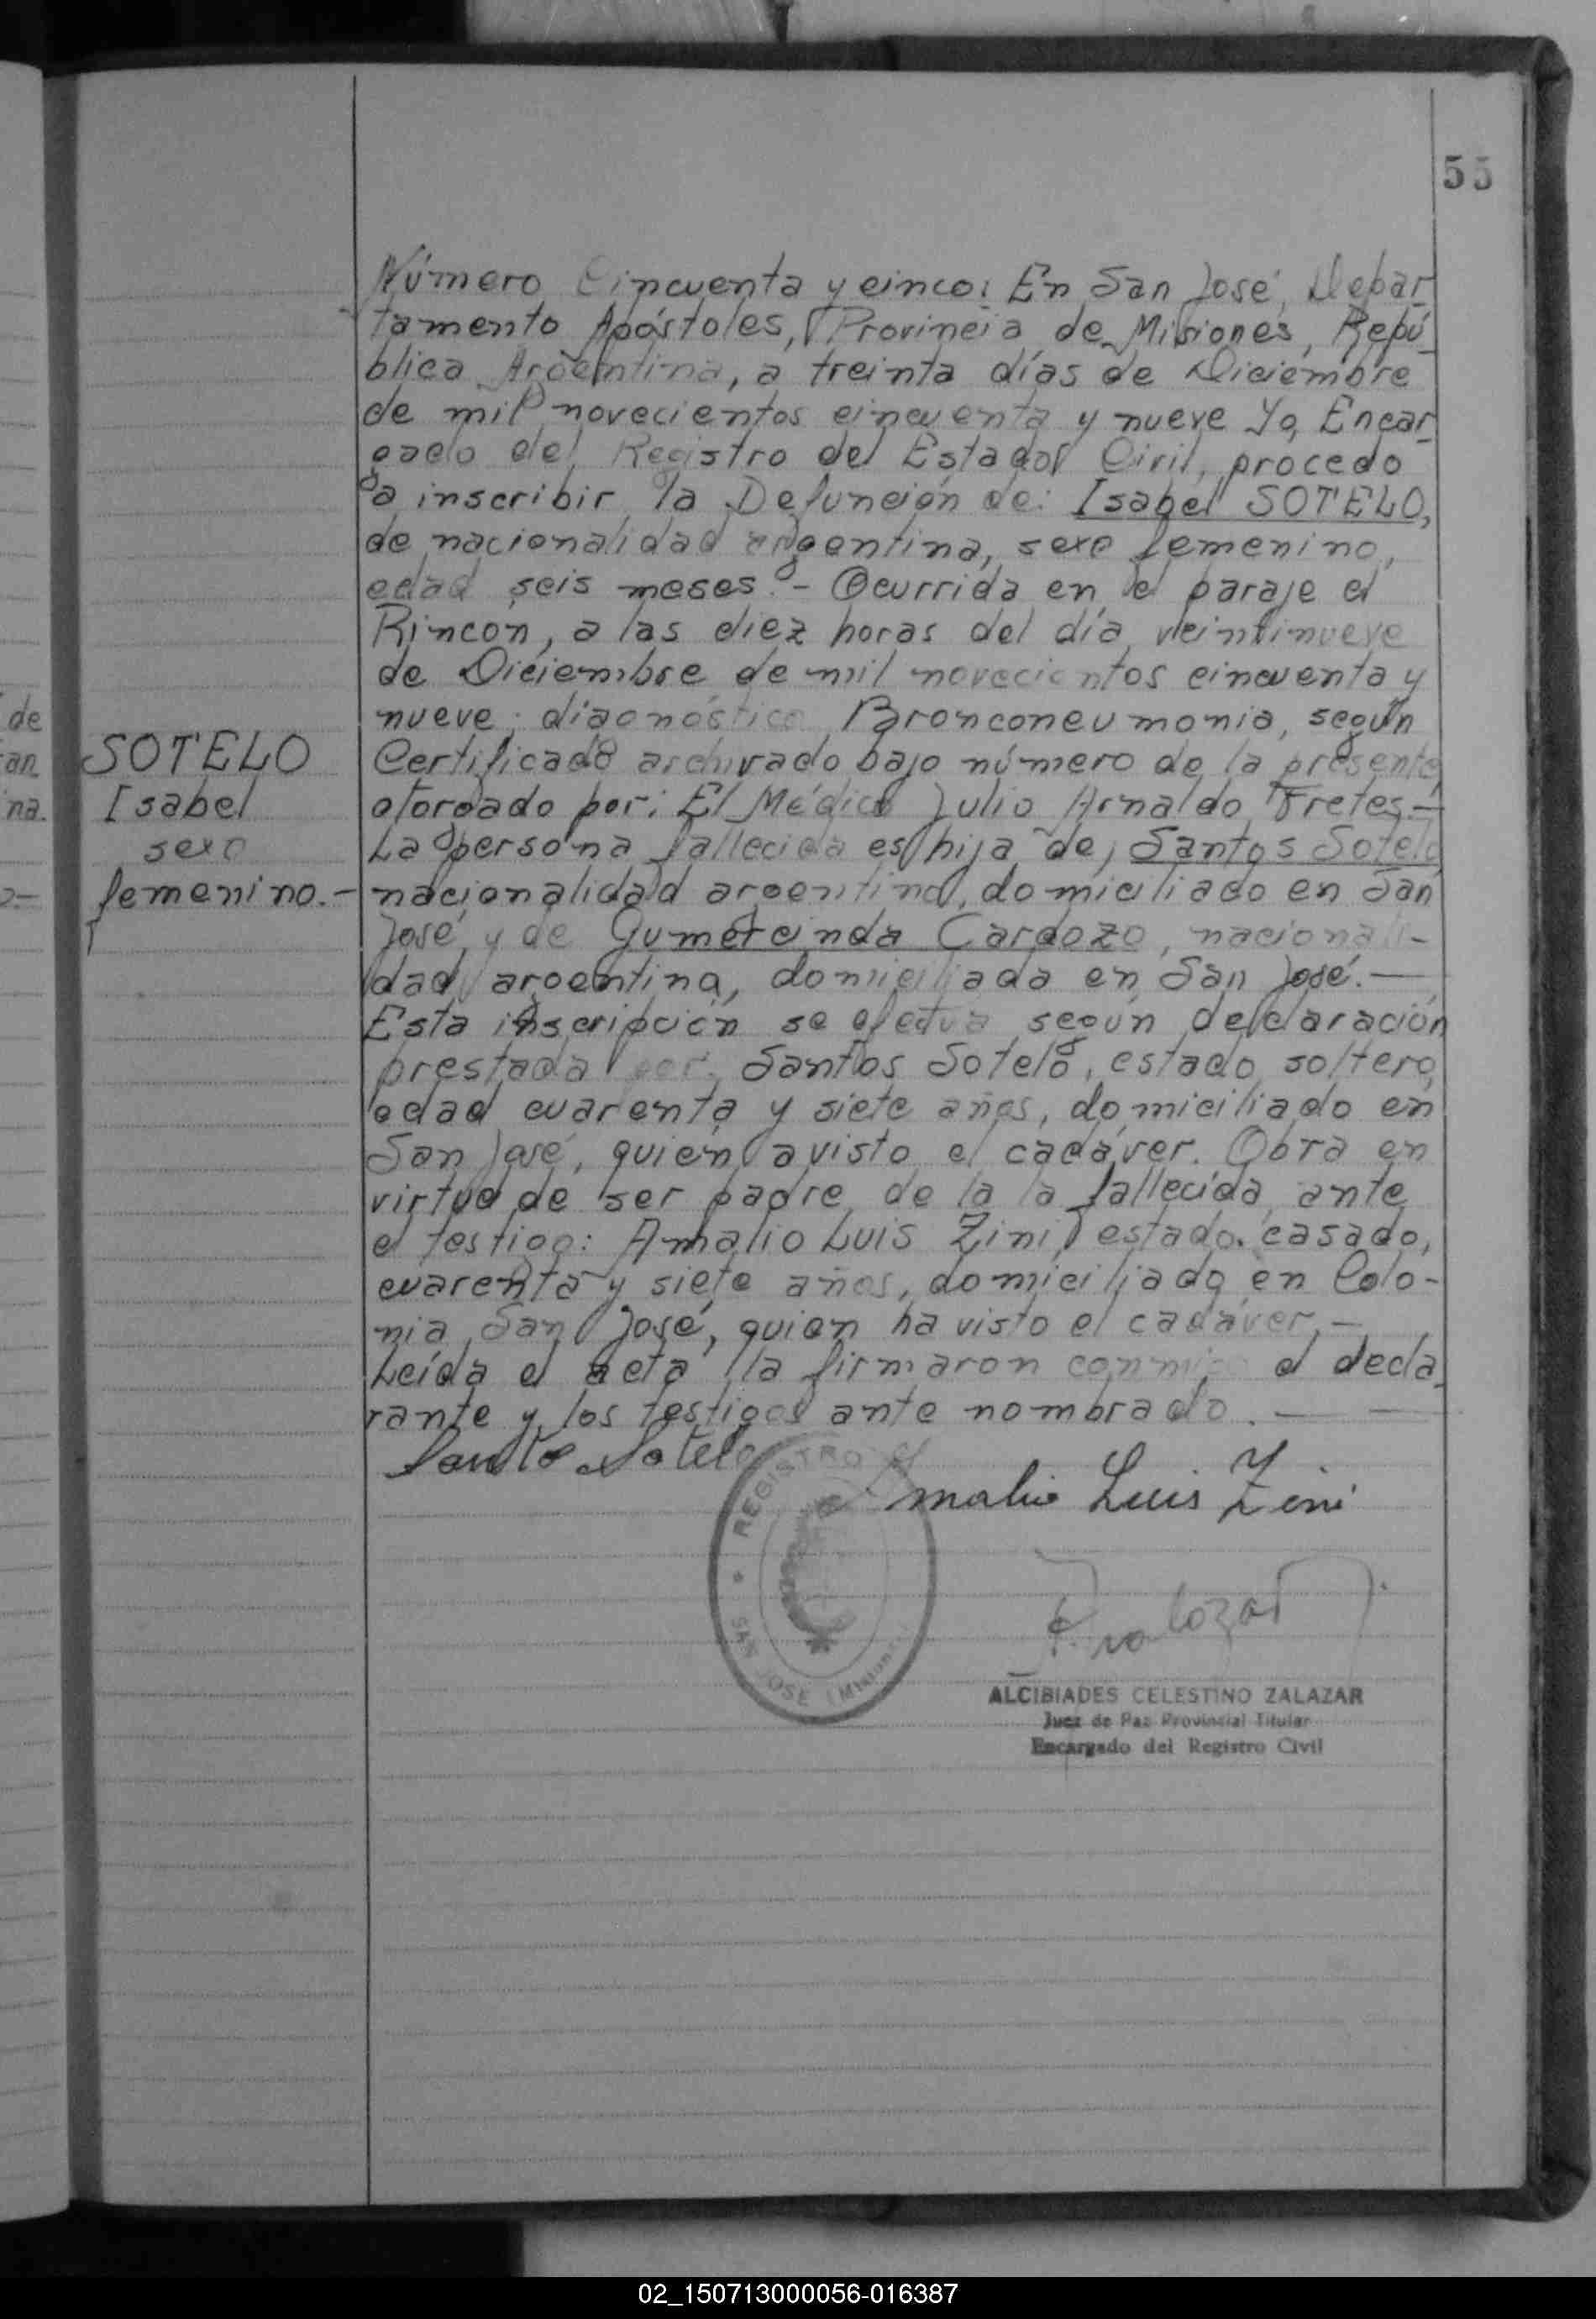 55
Número Cincuenta y cinco: En San José, Depar-
tamento Apóstoles, Provincia de Misiones, Repú-
blica Argentina, a treinta días de Diciembre
de mil novecientos cincuenta y nueve Yo, Encar-
gado del Registro del Estado Civil, procedo
a inscribir la Defunción de: Isabel SOTELO,
de nacionalidad argentina, sexo femenino,
edad seis meses.- Ocurrida en el paraje el
Rincon, a las diez horas del día veintinueve
de Diciembre de mil novecientos cincuenta y
nueve; diagnóstico Bronconeumonia, según
Certificado archivado bajo número de la presente
otorgado por: El Médico Julio Arnaldo Fretes.-
La persona fallecida es hija de, Santos Sotelo
nacionalidad argentina, domiciliado en San
José y de Gumercinda Cardozo, nacionali-
dad argentina, domiciliada en San José.-
Esta inscripción se efectua según declaración
prestada por: Santos Sotelo, estado soltero,
edad cuarenta y siete años, domiciliado en
San José, quién a visto el cadáver. Obra en
virtud de ser padre de la la fallecida ante
el testigo: Amalio Luis Zini, estado casado,
cuarenta y siete años, domiciliado en Colo-
nia San José, quien ha visto el cadáver.-
Leída el acta la firmaron conmigo el decla-
rante y los testigos ante nombrado.-
SOTELO
Isabel
sexo
femenino.-
de
an
na.
Santo Sotelo
Amalio Luis Zini
REGISTRO
SAN JOSE (Misiones)
ALCIBIADES CELESTINO ZALAZAR
Juez de Paz Provincial Titular
Encargado del Registro Civil
02_150713000056-016387